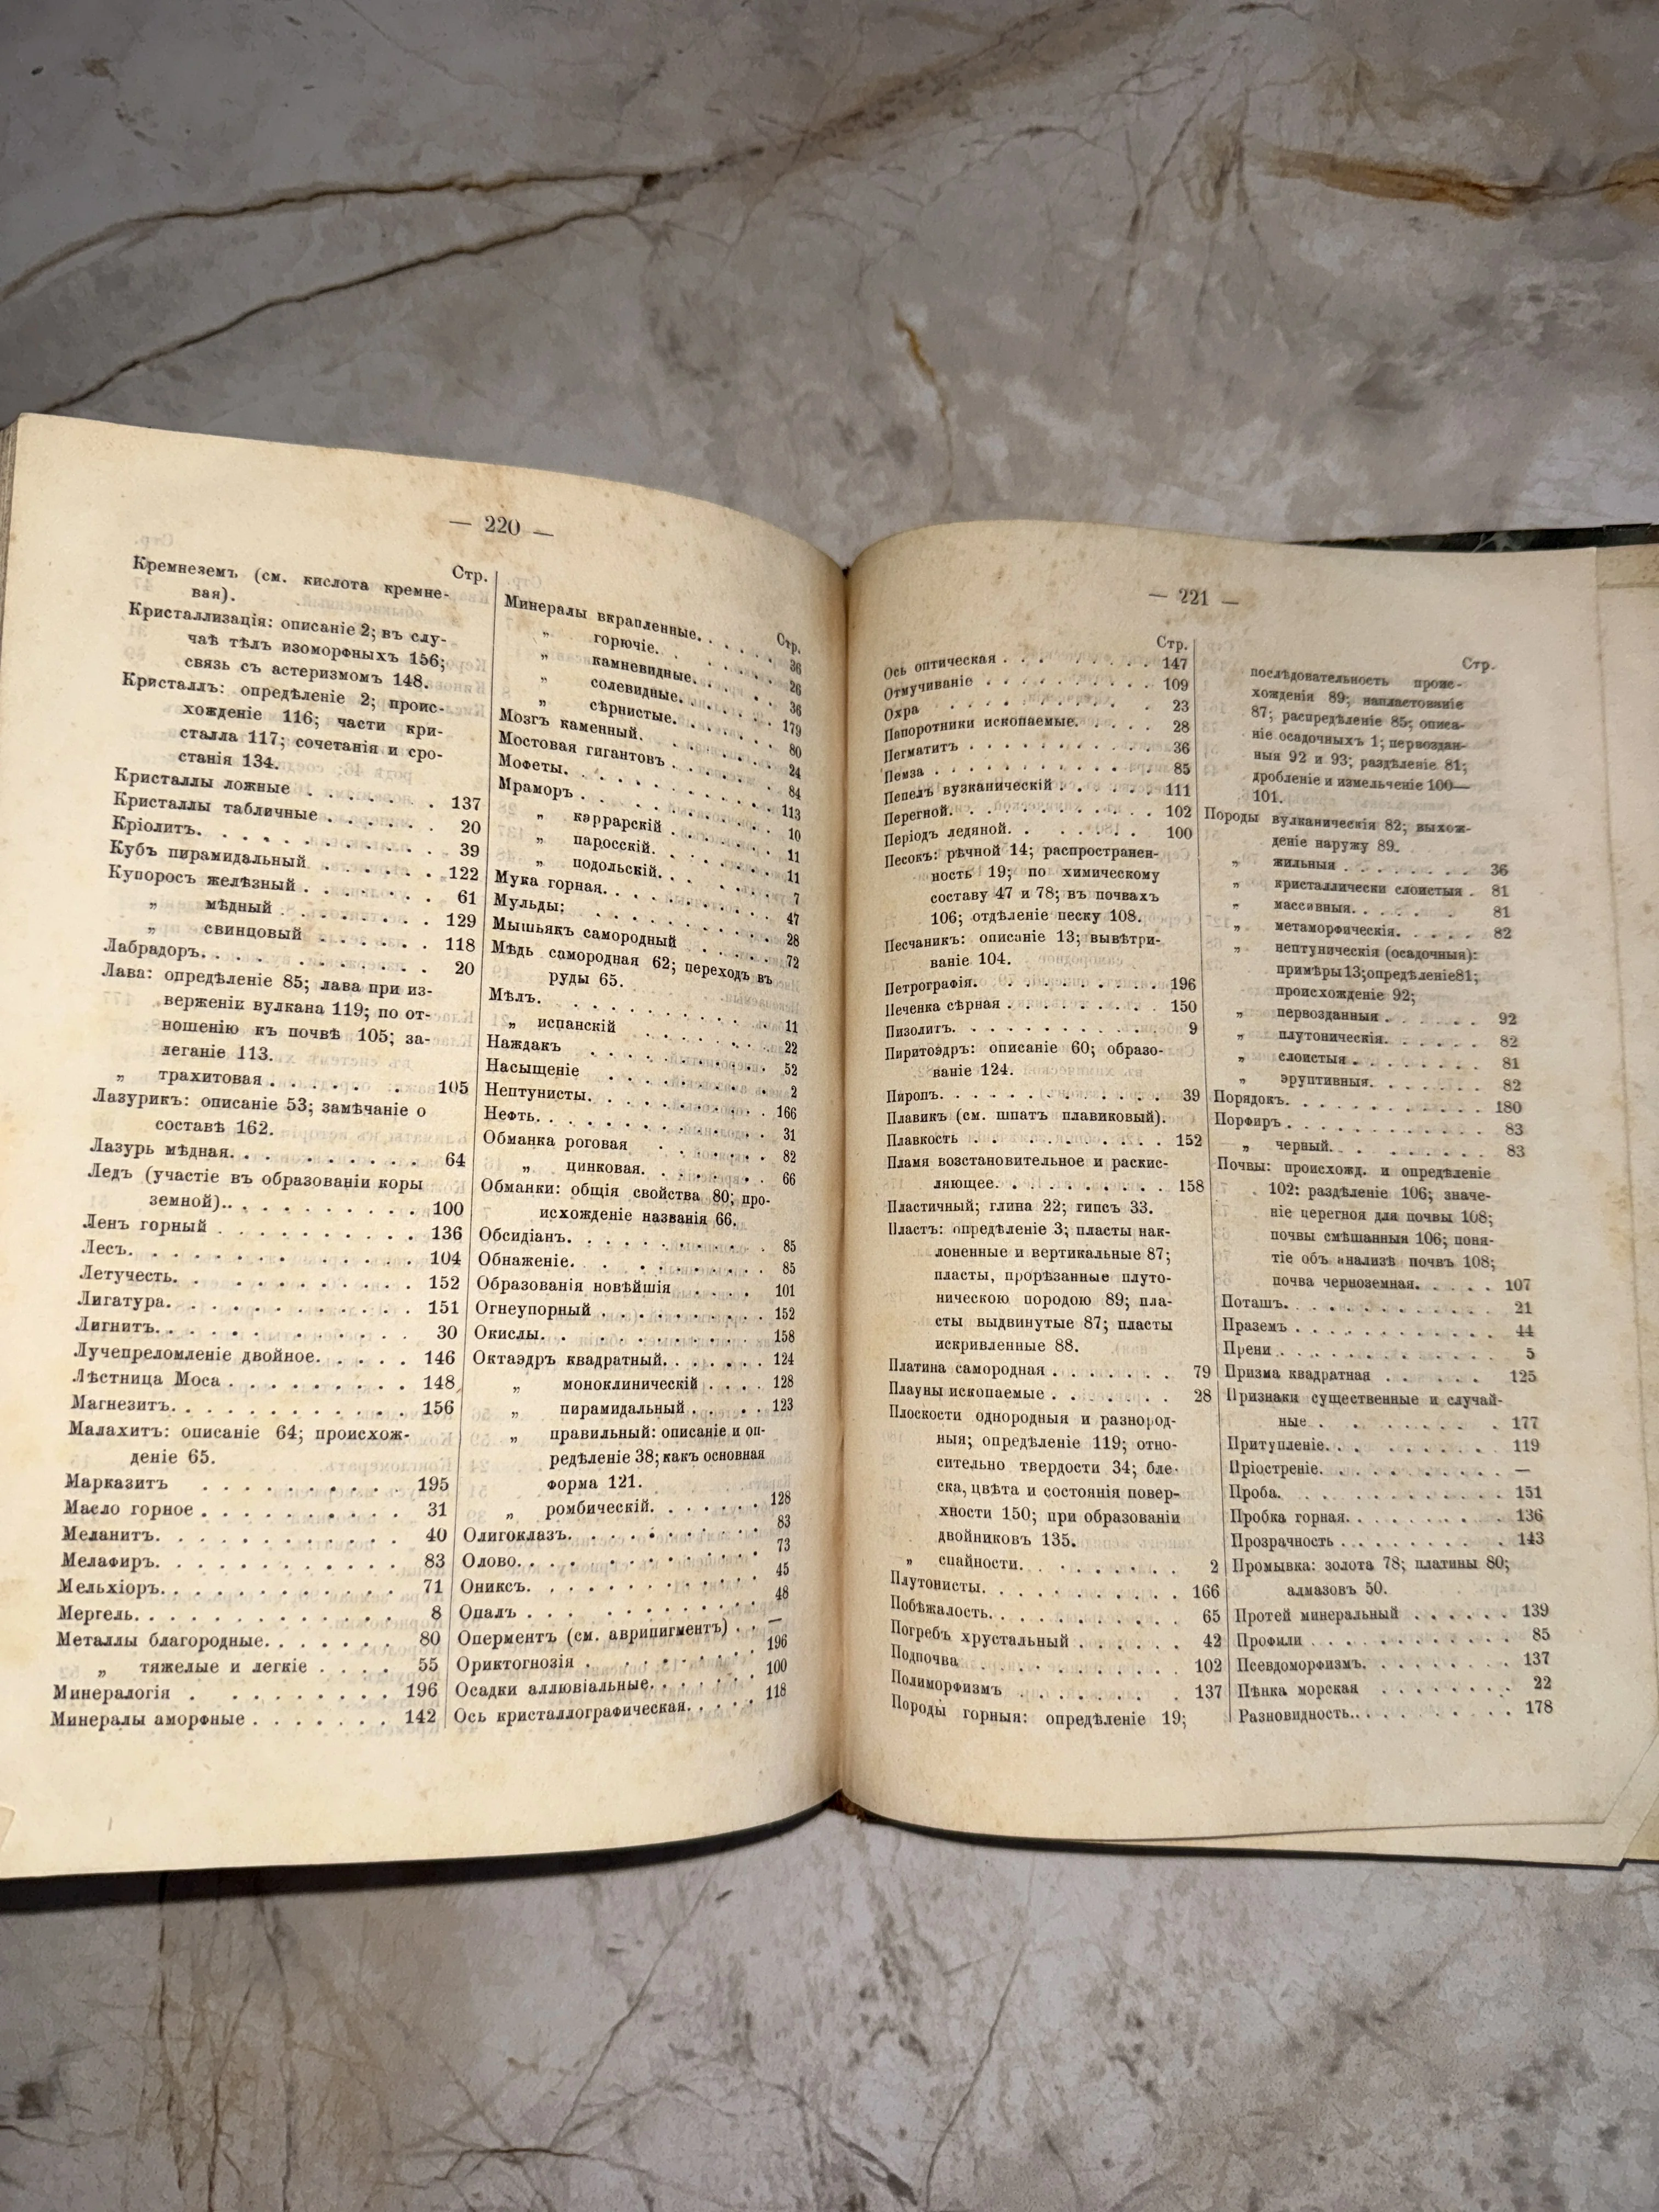 — 220 —
Стр.
Кремнеземъ (см. кислота кремне-
вая).
Кристаллизація: описаніе 2; въ слу-
чаѣ тѣлъ изоморфныхъ 156;
связь съ астеризмомъ 148.
Кристаллъ: опредѣленіе 2; проис-
хожденіе 116; части кри-
сталла 117; сочетанія и сро-
станія 134.
Кристаллы ложные . . . . . . 137
Кристаллы табличные . . . . . . 20
Кріолитъ. . . . . . . . . . 39
Кубъ пирамидальный . . . . . . 122
Купоросъ желѣзный . . . . . . 61
„ мѣдный . . . . . . . 129
„ свинцовый . . . . . . 118
Лабрадоръ. . . . . . . . . 20
Лава: опредѣленіе 85; лава при из-
верженіи вулкана 119; по от-
ношенію къ почвѣ 105; за-
леганіе 113.
„ трахитовая . . . . . . 105
Лазурикъ: описаніе 53; замѣчаніе о
составѣ 162.
Лазурь мѣдная. . . . . . . . . 64
Ледъ (участіе въ образованіи коры
земной). . . . . . . . . . 100
Ленъ горный . . . . . . . . . 136
Лесъ. . . . . . . . . . . 104
Летучесть. . . . . . . . . . 152
Лигатура. . . . . . . . . . 151
Лигнитъ. . . . . . . . . . 30
Лучепреломленіе двойное. . . . . 146
Лѣстница Моса . . . . . . . . 148
Магнезитъ. . . . . . . . . . 156
Малахитъ: описаніе 64; происхож-
деніе 65.
Марказитъ . . . . . . . . . 195
Масло горное . . . . . . . . . 31
Меланитъ. . . . . . . . . . 40
Мелафиръ. . . . . . . . . . 83
Мельхіоръ. . . . . . . . . . 71
Мергель. . . . . . . . . . . 8
Металлы благородные. . . . . . . 80
„ тяжелые и легкіе . . . . 55
Минералогія . . . . . . . . . 196
Минералы аморфные . . . . . . . 142
Стр.
Минералы вкрапленные. . . . . . 36
„ горючіе. . . . . . . 26
„ камневидные. . . . . 36
„ солевидные. . . . . . 179
„ сѣрнистые. . . . . . 80
Мозгъ каменный. . . . . . . . 24
Мостовая гигантовъ . . . . . . . 84
Мофеты. . . . . . . . . . . 113
Мраморъ . . . . . . . . . . 10
„ каррарскій . . . . . . . 11
„ паросскій. . . . . . . 11
„ подольскій. . . . . . . 7
Мука горная. . . . . . . . . . 47
Мульды: . . . . . . . . . . 28
Мышьякъ самородный . . . . . . 72
Мѣдь самородная 62; переходъ въ
руды 65.
Мѣлъ. . . . . . . . . . . 11
„ испанскій . . . . . . . 22
Наждакъ . . . . . . . . . . 52
Насыщеніе . . . . . . . . . 2
Нептунисты. . . . . . . . . . 166
Нефть. . . . . . . . . . . 31
Обманка роговая . . . . . . . 82
„ цинковая. . . . . . . 66
Обманки: общія свойства 80; про-
исхожденіе названія 66.
Обсидіанъ. . . . . . . . . . 85
Обнаженіе. . . . . . . . . . 85
Образованія новѣйшія . . . . . 101
Огнеупорный . . . . . . . . . 152
Окислы. . . . . . . . . . . 158
Октаэдръ квадратный. . . . . . . 124
„ моноклиническій . . . . 128
„ пирамидальный . . . . . 123
„ правильный: описаніе и оп-
редѣленіе 38; какъ основная
форма 121.
„ ромбическій. . . . . . . 128
Олигоклазъ. . . . . . . . . . 83
Олово. . . . . . . . . . . 73
Ониксъ. . . . . . . . . . . 45
Опалъ . . . . . . . . . . . 48
Оперментъ (см. аврипигментъ) . . —
Ориктогнозія . . . . . . . . . 196
Осадки аллювіальные. . . . . . . 100
Ось кристаллографическая. . . . . 118
— 221 —
Стр.
Ось оптическая . . . . . . . . 147
Отмучиваніе . . . . . . . . . 109
Охра . . . . . . . . . . . 23
Папоротники ископаемые. . . . . 28
Пегматитъ . . . . . . . . . . 36
Пемза . . . . . . . . . . . 85
Пепелъ вузканическій . . . . . . 111
Перегной. . . . . . . . . . 102
Періодъ ледяной. . . . . . . . 100
Песокъ: рѣчной 14; распространен-
ность 19; по химическому
составу 47 и 78; въ почвахъ
106; отдѣленіе песку 108.
Песчаникъ: описаніе 13; вывѣтри-
ваніе 104.
Петрографія. . . . . . . . . . 196
Печенка сѣрная . . . . . . . . 150
Пизолитъ. . . . . . . . . . 9
Пиритоэдръ: описаніе 60; образо-
ваніе 124.
Пиропъ. . . . . . . . . . . 39
Плавикъ (см. шпатъ плавиковый).
Плавкость . . . . . . . . . 152
Пламя возстановительное и раскис-
ляющее. . . . . . . . . . 158
Пластичный; глина 22; гипсъ 33.
Пластъ: опредѣленіе 3; пласты нак-
лоненные и вертикальные 87;
пласты, прорѣзанные плуто-
ническою породою 89; пла-
сты выдвинутые 87; пласты
искривленные 88.
Платина самородная . . . . . . . 79
Плауны ископаемые . . . . . . . 28
Плоскости однородныя и разнород-
ныя; опредѣленіе 119; отно-
сительно твердости 34; бле-
ска, цвѣта и состоянія повер-
хности 150; при образованіи
двойниковъ 135.
„ спайности. . . . . . . . 2
Плутонисты. . . . . . . . . . 166
Побѣжалость. . . . . . . . . . 65
Погребъ хрустальный . . . . . . 42
Подпочва . . . . . . . . . . 102
Полиморфизмъ . . . . . . . . 137
Породы горныя: опредѣленіе 19;
Стр.
послѣдовательность проис-
хожденія 89; напластованіе
87; распредѣленіе 85; описа-
ніе осадочныхъ 1; первоздан-
ныя 92 и 93; раздѣленіе 81;
дробленіе и измельченіе 100—
101.
Породы вулканическія 82; выхож-
деніе наружу 89.
„ жильныя . . . . . . . 36
„ кристаллически слоистыя . 81
„ массивныя. . . . . . . 81
„ метаморфическія. . . . . 82
„ нептуническія (осадочныя):
примѣры 13; опредѣленіе 81;
происхожденіе 92;
„ первозданныя . . . . . . 92
„ плутоническія. . . . . . 82
„ слоистыя . . . . . . . 81
„ эруптивныя. . . . . . . 82
Порядокъ. . . . . . . . . . 180
Порфиръ . . . . . . . . . . 83
„ черный. . . . . . . . 83
Почвы: происхожд. и опредѣленіе
102: раздѣленіе 106; значе-
ніе церегноя для почвы 108;
почвы смѣшанныя 106; поня-
тіе объ анализѣ почвъ 108;
почва черноземная. . . . . 107
Поташъ. . . . . . . . . . . 21
Праземъ . . . . . . . . . . 44
Прени . . . . . . . . . . . 5
Призма квадратная . . . . . . . 125
Признаки существенные и случай-
ные . . . . . . . . . . 177
Притупленіе. . . . . . . . . . 119
Пріостреніе. . . . . . . . . . —
Проба. . . . . . . . . . . 151
Пробка горная. . . . . . . . . 136
Прозрачность . . . . . . . . . 143
Промывка: золота 78; платины 80;
алмазовъ 50.
Протей минеральный . . . . . . 139
Профили . . . . . . . . . . 85
Псевдоморфизмъ. . . . . . . . 137
Пѣнка морская . . . . . . . . 22
Разновидность. . . . . . . . . 178